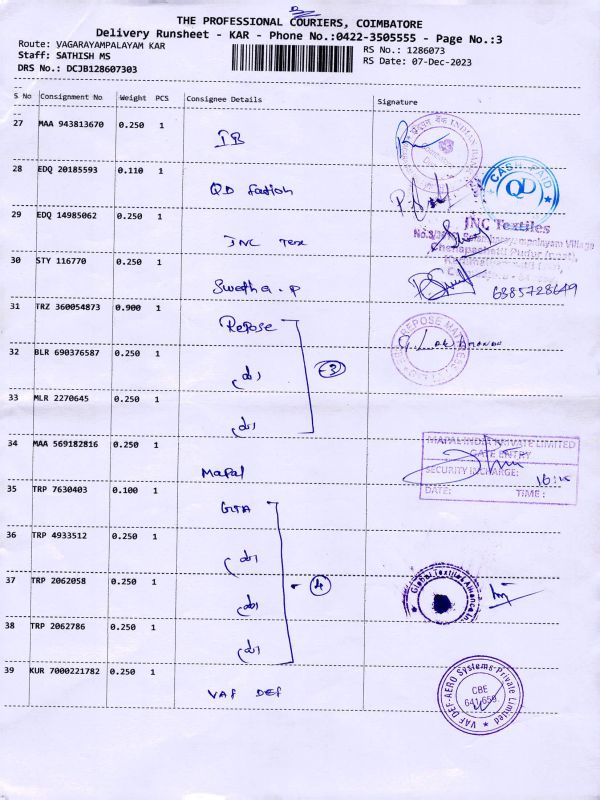 THE PROFESSIONAL COURIERS, COIMBATORE
Delivery Runsheet - KAR - Phone No.:0422-3505555 - Page No.:3
Route: VAGARAYAMPALAYAM KAR
RS No.: 1286073
Staff: SATHISH MS
RS Date: 07-Dec-2023
DRS No.: DCJB128607303
S No Consignment No Weight PCS Consignee Details Signature
27 MAA 943813670 0.250 1 IB
28 EDQ 20185593 0.110 1 QD fashion
CASH PAID
QD
29 EDQ 14985062 0.250 1 JNC Tex
JNC Textiles
30 STY 116770 0.250 1 Swetha . P
6385728649
31 TRZ 360054873 0.900 1 Repose
REPOSE MATTRESS
32 BLR 690376587 0.250 1
3
33 MLR 2270645 0.250 1
34 MAA 569182816 0.250 1 Mapal
MAPAL INDIA PRIVATE LIMITED
GATE ENTRY
SECURITY INCHARGE:
DATE: TIME:
35 TRP 7630403 0.100 1 GTA
36 TRP 4933512 0.250 1
4
37 TRP 2062058 0.250 1
Global Textiles Alliance In
38 TRP 2062786 0.250 1
39 KUR 7000221782 0.250 1 VAF DEF
VAF DEF-AERO Systems Private Limited
CBE
641 659